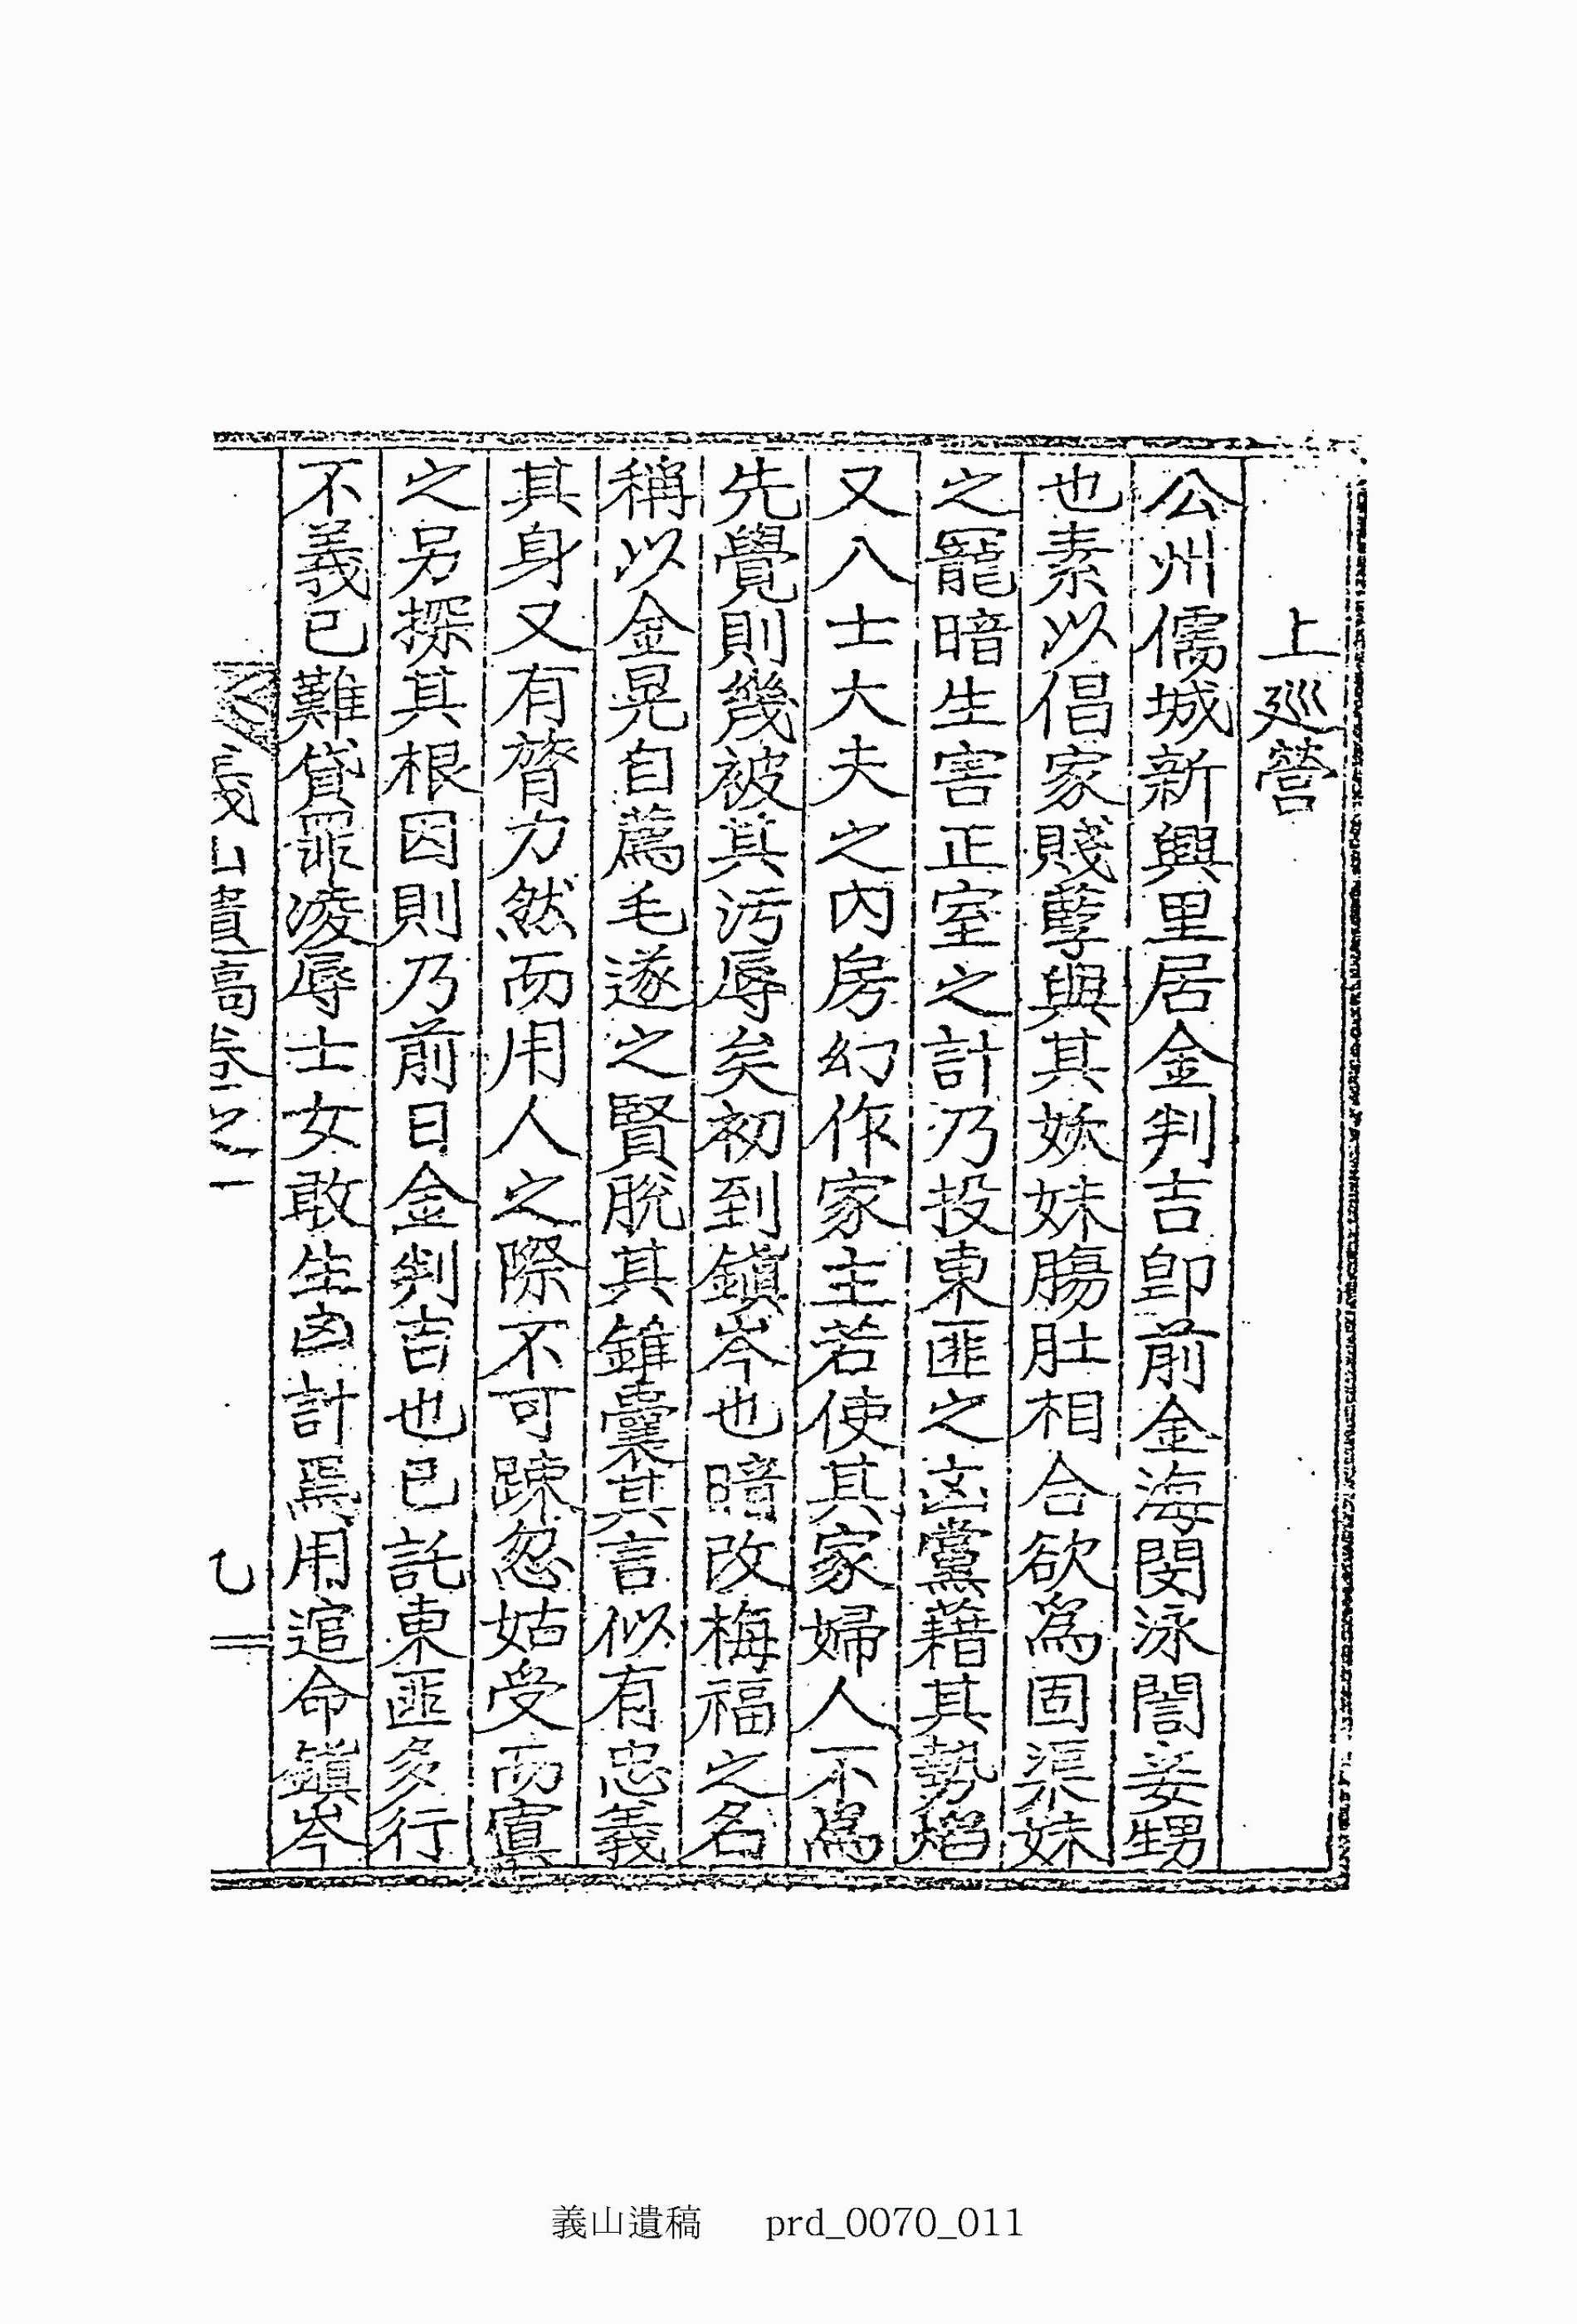 上廵營
公州儒城新興里居金判吉卽前金海閔泳誾妾甥
也素以倡家賤孼與其妖妹膓肚相合欲爲固渠妹
之寵暗生害正室之計乃投東匪之凶黨藉其勢焰
又入士大夫之內房幻作家主若使其家婦人不爲
先覺則幾被其污辱矣初到鎭岑也暗改梅福之名
稱以金晃自薦毛遂之賢脫其錐囊其言似有忠義
其身又有膂力然而用人之際不可踈忽姑受而寘
之另探其根因則乃前日金判吉也已託東匪多行
不義已難貸罪凌辱士女敢生凶計焉用逭命鎭岑
義山遺稿卷之一
七
義山遺稿 prd_0070_011